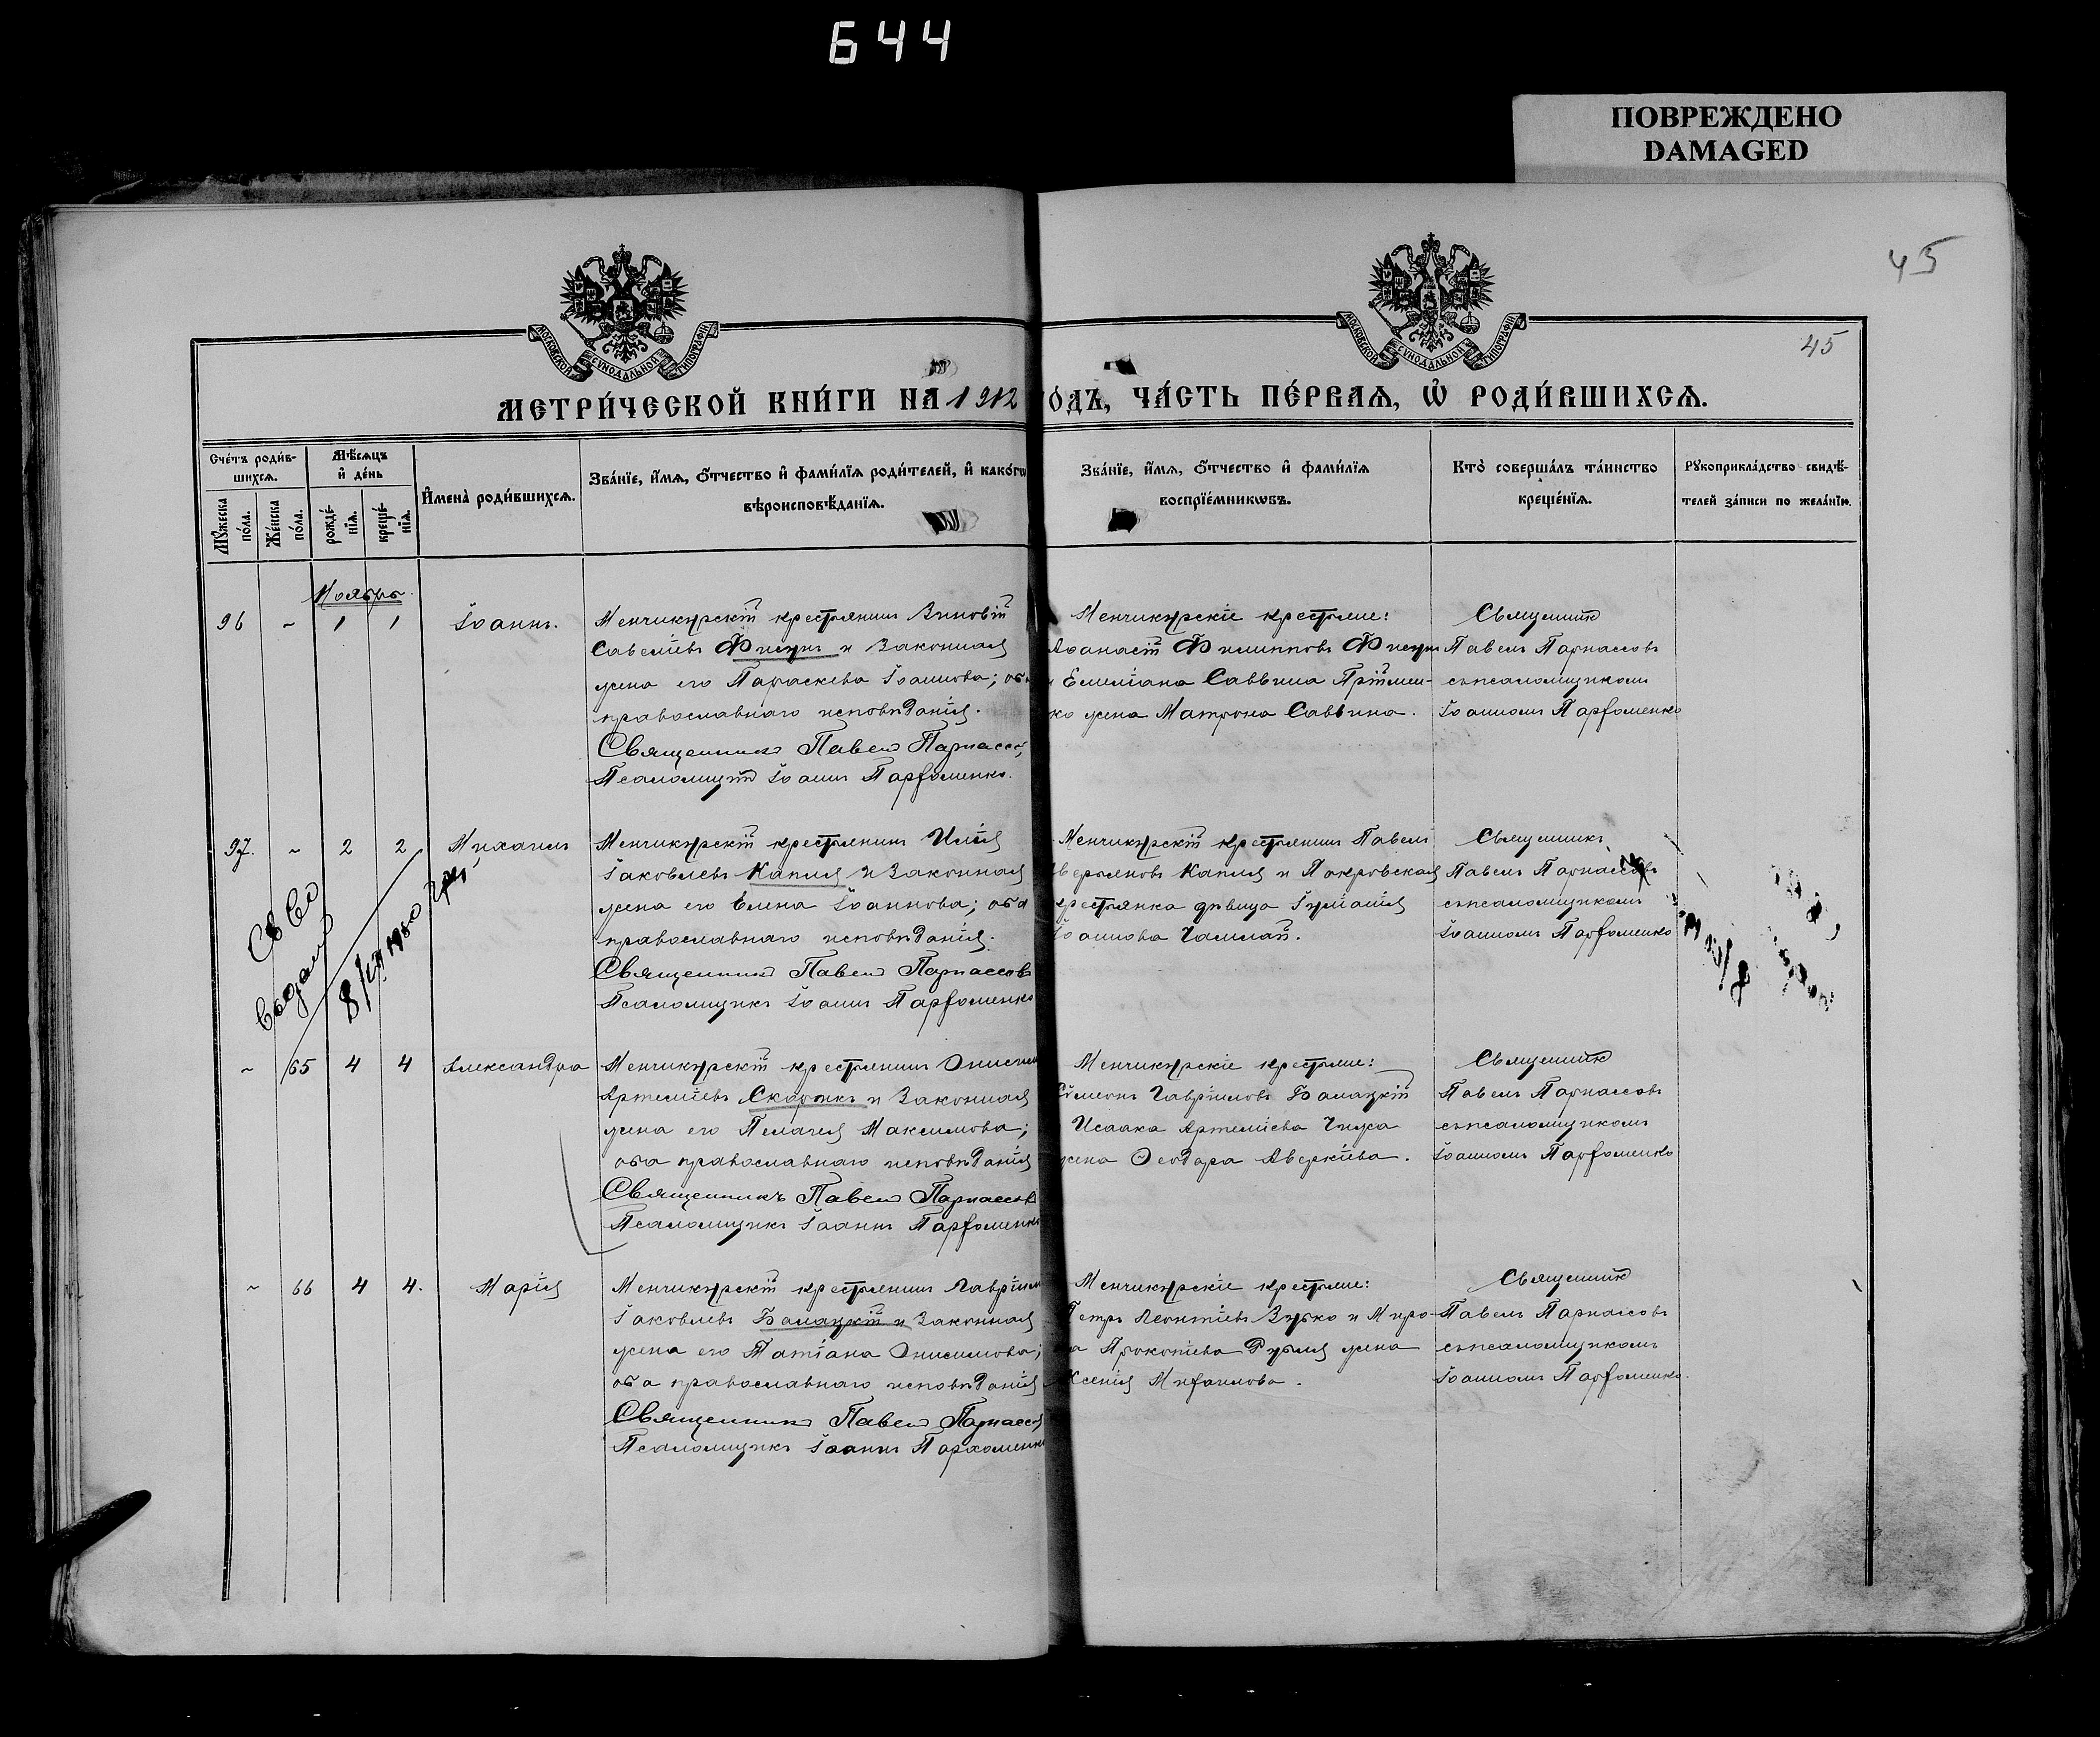 644
ПОВРЕЖДЕНО
DAMAGED
45
45
МОСКОВСКОЙ СѴНОДАЛЬНОЙ ТИПОГРАФІИ
МОСКОВСКОЙ СѴНОДАЛЬНОЙ ТИПОГРАФІИ
МЕТРИ́ЧЕСКОЙ КНИ́ГИ НА 1912 ГОДЪ, ЧА́СТЬ ПЕ́РВАѦ, Ѡ҆ РОДИ́ВШИХСѦ.
Сче́тъ роди́в-
шихсѧ.
Мꙋ́жеска по́ла.
Же́нска по́ла.
Мѣ́сѧцъ
и҆ де́нь
рожде́-
нїѧ.
креще́-
нїѧ.
И҆мена̀ роди́вшихсѧ.
Зва́нїе, и҆́мѧ, о҆́тчество и҆ фами́лїѧ роди́телей, и҆ како́гѡ
вѣроисповѣ́данїѧ.
Зва́нїе, и҆́мѧ, о҆́тчество и҆ фами́лїѧ
воспрїе́мникѡвъ.
Кто̀ соверша́лъ та́инство
креще́нїѧ.
Рꙋкоприкла́дство свидѣ́-
телей за́писи по жела́нїю.
Ноябрь.
96 ~ 1 1 Іоаннъ.
Менчикурскій крестьянинъ Зиновій
Савеліевъ Фисунъ и законная
жена его Параскева Іоаннова; оба
православнаго исповѣданія.
Священникъ Павелъ Парнассов
Псаломщикъ Іоаннъ Парфоменко.
Менчикурскіе крестьяне:
Аѳанасій Филипповъ Фисун
и Емиліана Саввина Прій
ко жена Матрона Саввина.
Священникъ
Павелъ Парнассовъ
съ псаломщикомъ
Іоанномъ Парфоменко
97. ~ 2 2 Михаилъ
Менчикурскій крестьянинъ Илія
Іаковлевъ Капля и законная
жена его Елена Іоаннова; оба
православнаго исповѣданія.
Священникъ Павелъ Парнассовъ
Псаломщикъ Іоаннъ Парфоменко
Менчикурскій крестьянинъ Павелъ
Аверьяновъ Капля и Покровская
крестьянка дѣвица Іуліанія
Іоаннова
Священникъ
Павелъ Парнассовъ
съ псаломщикомъ
Іоанномъ Парфоменко
Св во
выдано
~ 65 4 4 Александра
Менчикурскій крестьянинъ Онисим
Артеміевъ Скорикъ и законная
жена его Пелагея Максимова;
оба православнаго исповѣданія
Священникъ Павелъ Парнассовъ
Псаломщикъ Іоаннъ Парфоменко
Менчикурскіе крестьяне:
Сѵмеонъ Гавріиловъ Балацкій
Исаака Артеміева Чижа
жена Ѳеодора Аверкіева.
Священникъ
Павелъ Парнассовъ
съ псаломщикомъ
Іоанномъ Парфоменко
~ 66 4 4. Марія
Менчикурскій крестьянинъ Гавріил
Іаковлевъ Балацкій и законная
жена его Татіана Онисимова;
оба православнаго исповѣданія
Священникъ Павелъ Парнассов
Псаломщикъ Іоаннъ Пархоменко
Менчикурскіе крестьяне:
Петръ Леонтіевъ Зубко и Миро-
на Прокопіева жена
Ксенія Михаилова.
Священникъ
Павелъ Парнассовъ
съ псаломщикомъ
Іоанномъ Парфоменко.